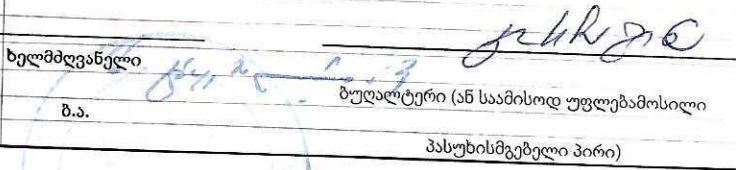 ხელმძღვანელი
ბუღალტერი (ან საამისოდ უფლებამოსილი
ბ.ა.
პასუხისმგებელი პირი)